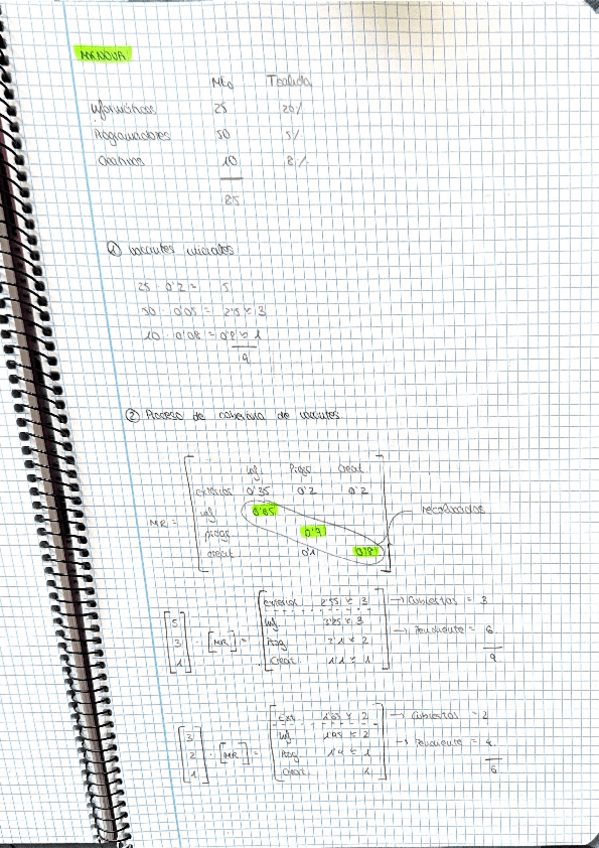 Nto Tsalida
Informáticos 25 20%
Programadores 50 5%
Creativos 10 8%
85
① Vacantes iniciales
25 · 0'2 = 5
50 · 0'05 = 2'5 ≈ 3
10 · 0'08 = 0'8 ≈ 1
9
② Proceso de cobertura de vacantes
Inf Progr Creat
exteriores 0'35 0'2 0'2
MR = inf 0'65
progs 0'7
creat 0'1 0'8
[5 3 1] · [MR] =
exterior 2'55 ≈ 3 → Cubiertas = 3
inf 3'25 ≈ 3
Prog 2'1 ≈ 2 → Pendiente = 6
Creat 1'1 ≈ 1
9
[3 2 1] · [MR] =
Ext 1'65 ≈ 2 → Cubiertas = 2
inf 1'95 ≈ 2
Prog 1'4 ≈ 1 → Pendiente = 4
Creat 1
6